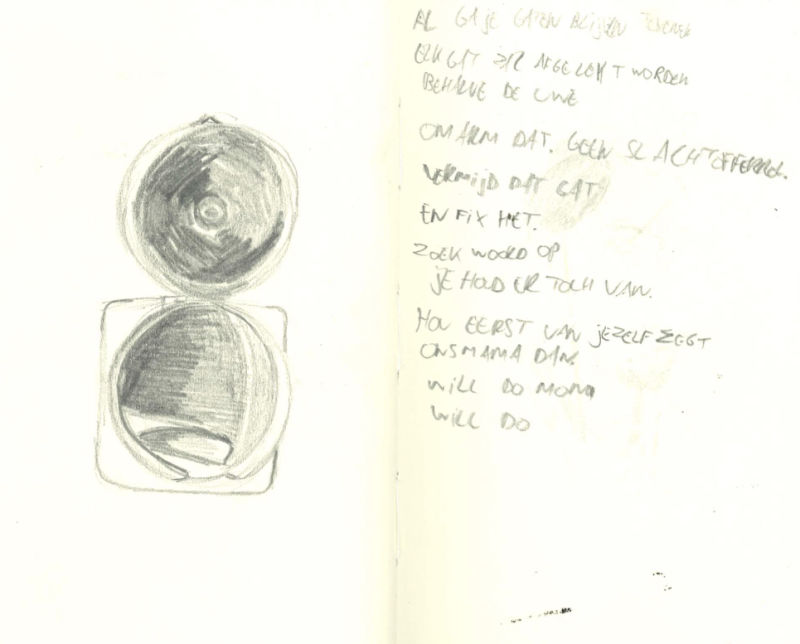 AL GA JE GATEN BLIJVEN TEKENEN
ELK GAT ZAL AFGELEMT WORDEN
BEHALVE DE UWE
OMARM DAT. GEEN SLACHTOFFERROL.
VERMIJD DAT GAT
EN FIX HET.
ZOEK WOORD OP
JE HOUD ER TOCH VAN.
HOU EERST VAN JEZELF ZEGT
ONS MAMA DAN.
WILL DO MOMA
WILL DO